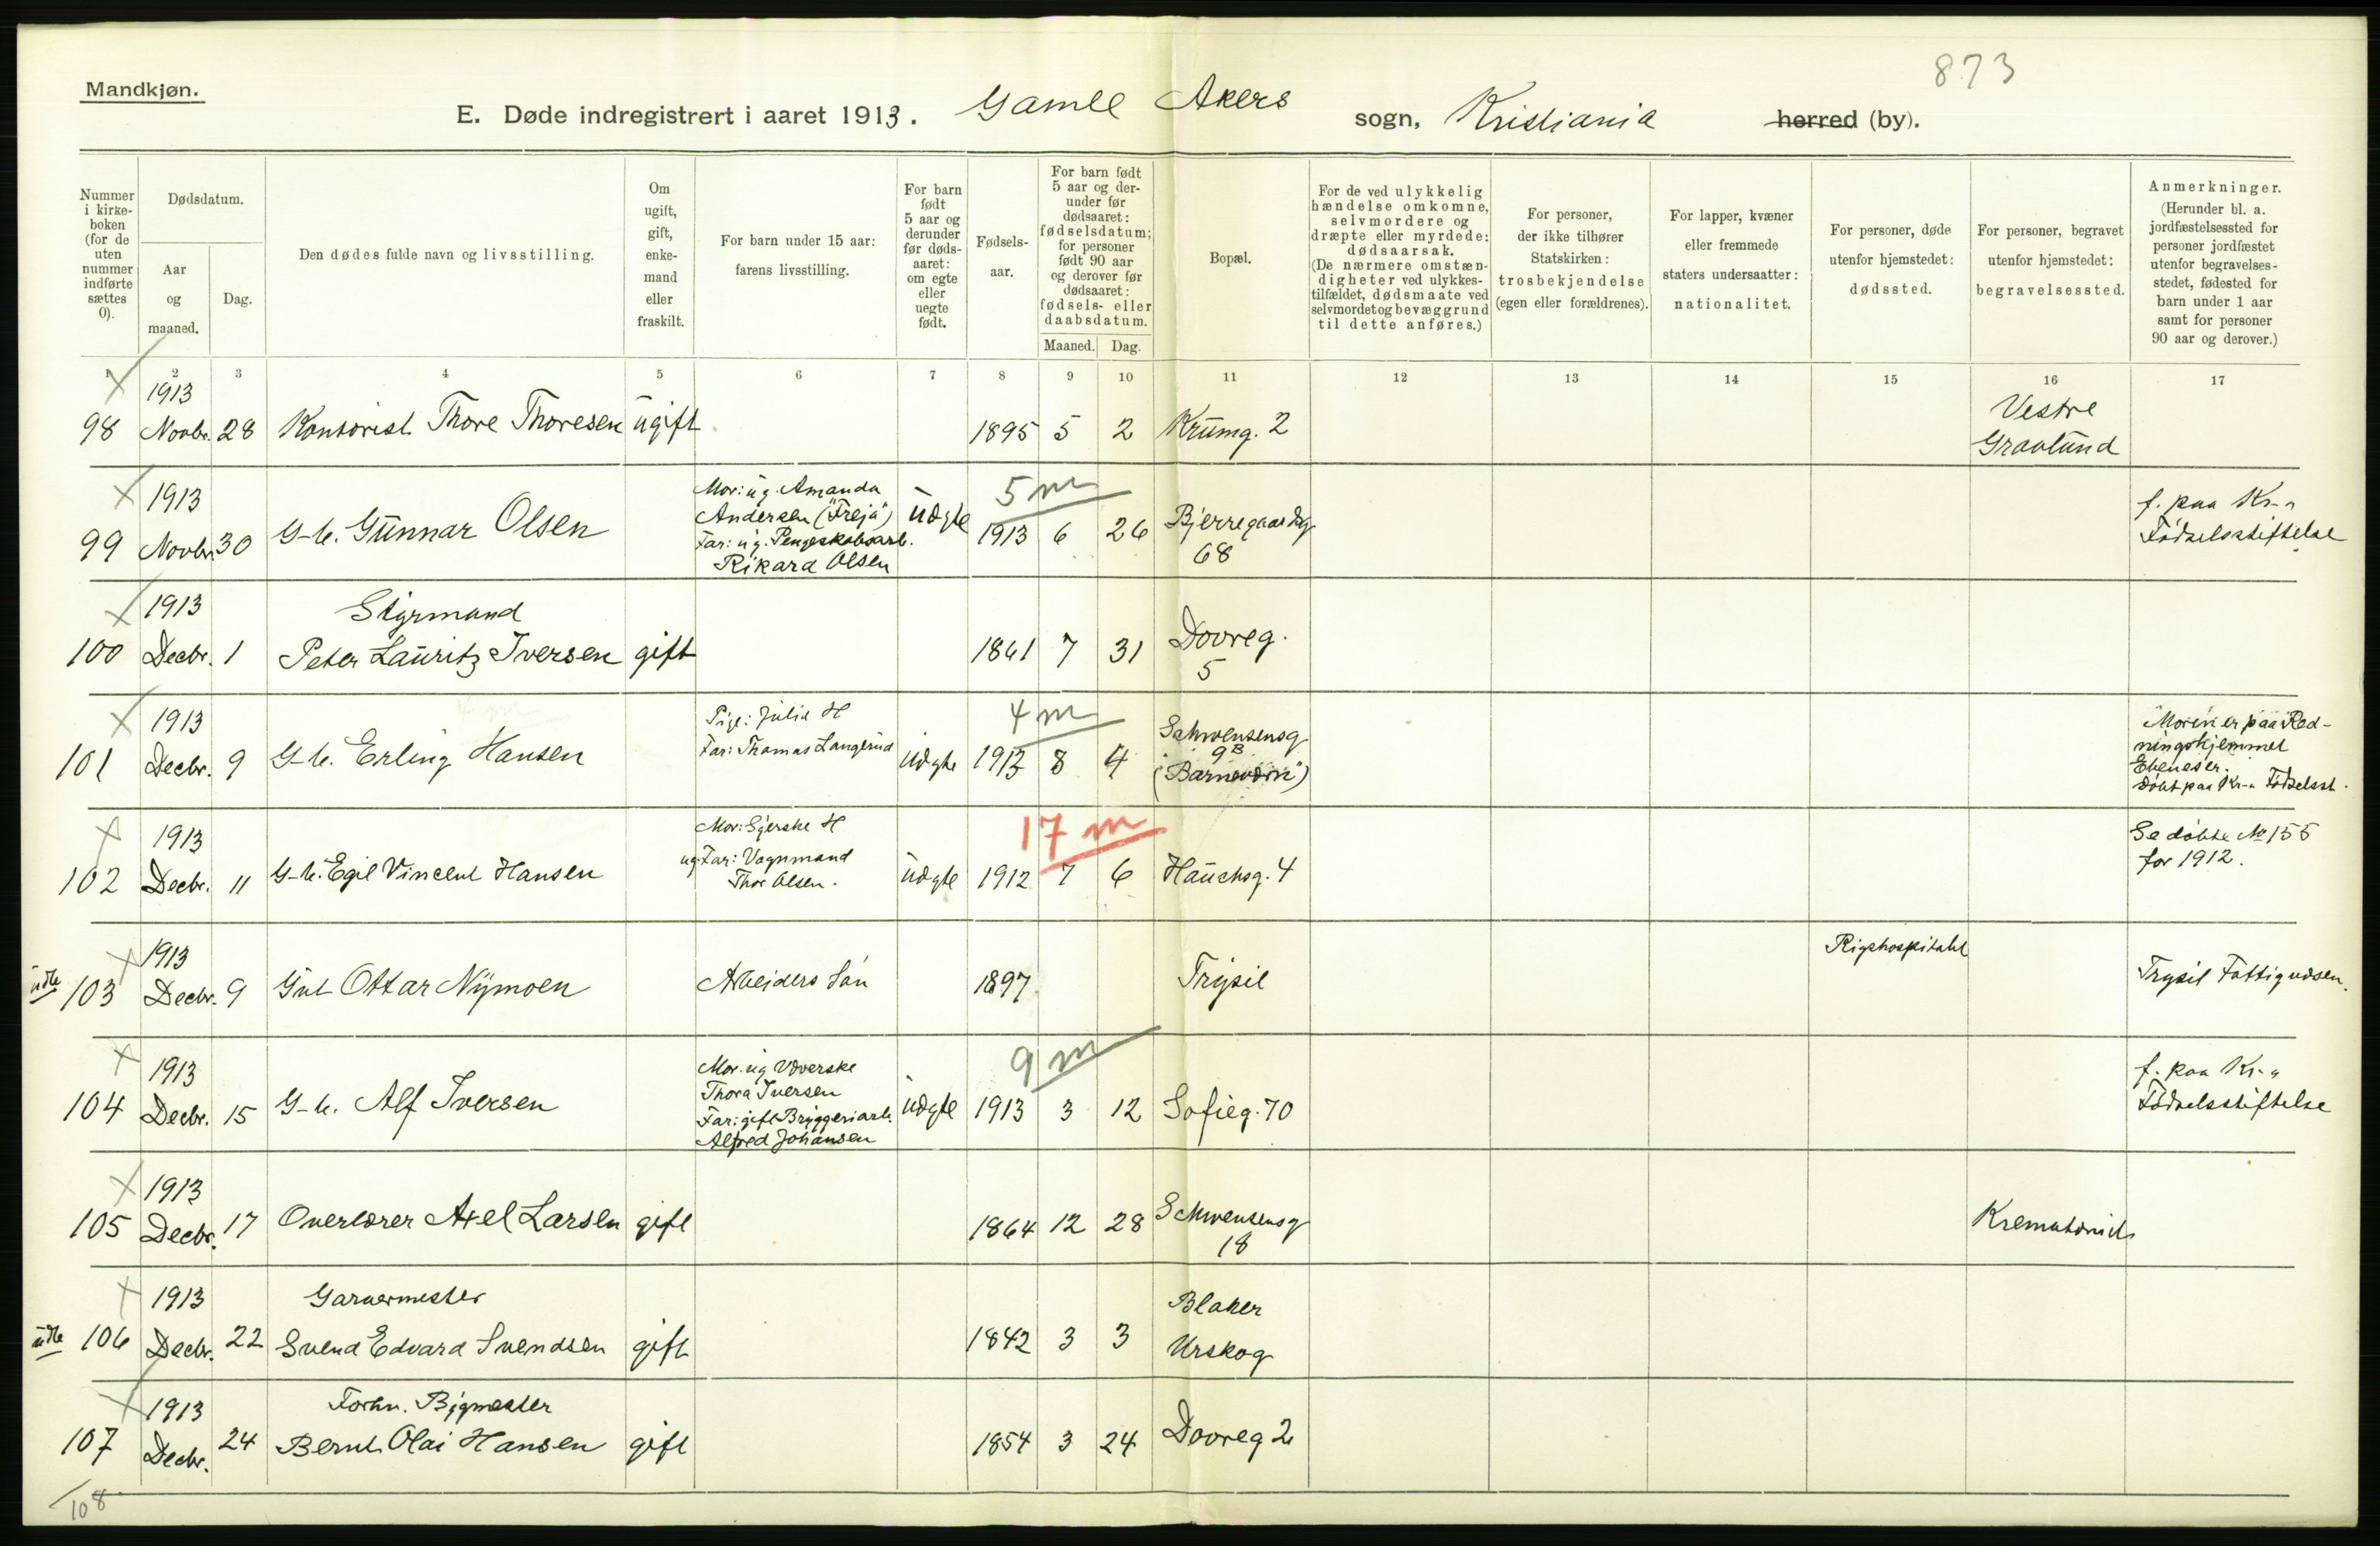 873
Mandkjøn.
E. Døde indregistrert i aaret 1913. Gamle Akers sogn, Kristiania herred (by).
Nummer i kirke-boken (for de uten nummer indførte sættes 0).
Dødsdatum.
Aar og maaned.
Dag.
Den dødes fulde navn og livsstilling.
Om ugift, gift, enke-mand eller fraskilt.
For barn under 15 aar: farens livsstilling.
For barn født 5 aar og derunder før døds-aaret: om egte eller uegte født.
Fødsels-aar.
For barn født 5 aar og der-under før dødsaaret: fødselsdatum; for personer født 90 aar og derover før dødsaaret: fødsels- eller daabsdatum.
Maaned. Dag.
Bopæl.
For de ved ulykkelig hændelse omkomne, selvmordere og dræpte eller myrdede: dødsaarsak. (De nærmere omstæn-digheter ved ulykkes-tilfældet, dødsmaate ved selvmordet og bevæggrund til dette anføres.)
For personer, der ikke tilhører Statskirken: trosbekjendelse (egen eller forældrenes).
For lapper, kvæner eller fremmede staters undersaatter: nationalitet.
For personer, døde utenfor hjemstedet: dødssted.
For personer, begravet utenfor hjemstedet: begravelsessted.
Anmerkninger. (Herunder bl. a. jordfæstelsessted for personer jordfæstet utenfor begravelses-stedet, fødested for barn under 1 aar samt for personer 90 aar og derover.)
1 2 3 4 5 6 7 8 9 10 11 12 13 14 15 16 17
98 1913 Novbr. 28 Kontorist Thore Thoresen ugift 1895 5 2 Krumg. 2 Vestre Gravlund
99 1913 Novbr. 30 G-b. Gunnar Olsen Mor: ug. Amanda Andersen ("Freja") Far: ug. Pengeskabsarb. Rikard Olsen uægte 5 m 1913 6 26 Bjerregaardsg 68 f. paa Kr-a Fødselsstiftelse
100 1913 Decbr. 1 Styrmand Peter Lauritz Iversen gift 1861 7 31 Dovreg. 5
101 1913 Decbr. 9 G-b. Erling Hansen Pige: Julie H Far: Thomas Langerud uægte 4 m 1913 8 4 Schwensensg 9B ("Barneværn") Moren er paa Red-ningshjemmet Ebeneser. Døbt paa Kr-a Fødselsst.
102 1913 Decbr. 11 G-b. Egil Vincent Hansen Mor: Syerske H ug. Far: Vognmand Thor Olsen. uægte 17 m 1912 7 6 Hauchsg. 4 Se døbte No 155 for 1912.
103 1913 Decbr. 9 Gut Ottar Nymoen Arbeiders Søn 1897 Trysil Rigshospitalet Trysil Fattigvæsen.
104 1913 Decbr. 15 G-b. Alf Iversen Mor. ug Væverske Thora Iversen Far: gift Bryggeriarb. Alfred Johansen uægte 9 m 1913 3 12 Sofieg. 70 f. paa Kr-a Fødselsstiftelse
105 1913 Decbr. 17 Overlærer Axel Larsen gift 1864 12 28 Schwensensg 18 Krematoriet
106 1913 Decbr. 22 Garvermester Svend Edvard Svendsen gift 1842 3 3 Blaker Urskog
107 1913 Decbr. 24 Forhv. Bygmester Bernt Olai Hansen gift 1854 3 24 Dovreg 2
108